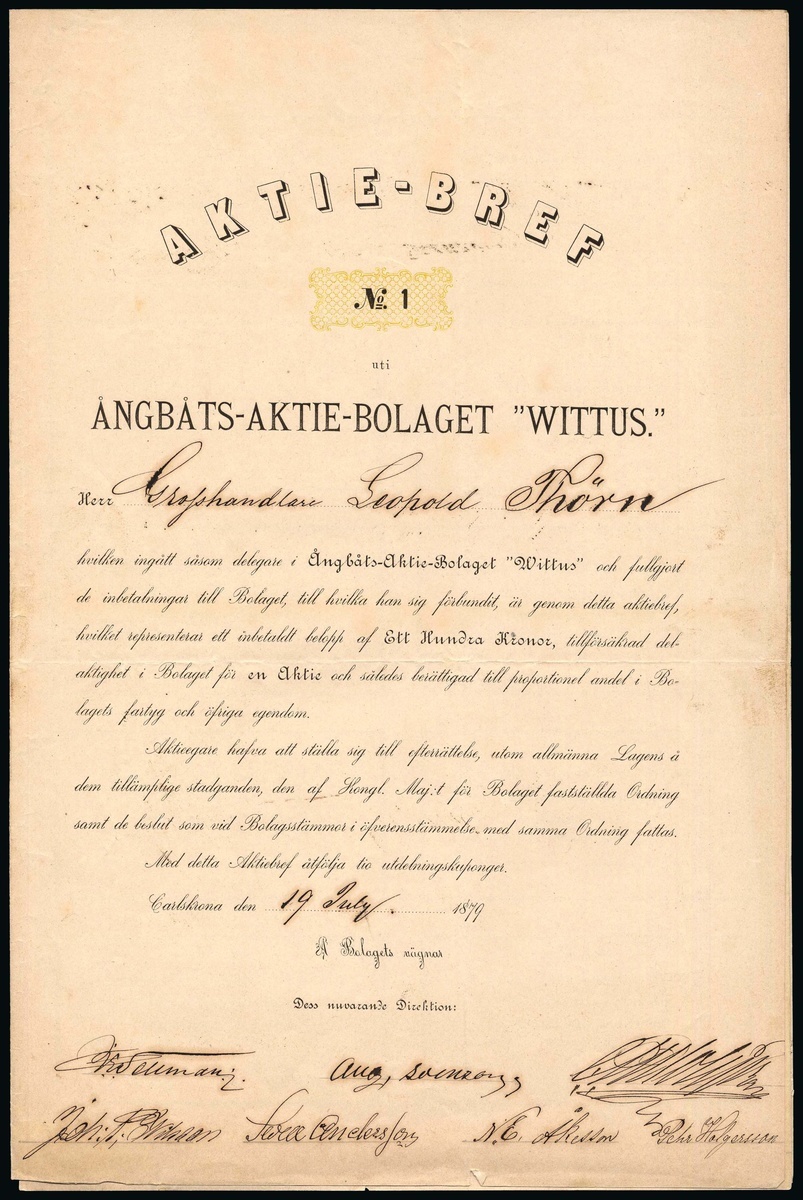 AKTIE-BREF
No. 1
uti
ÅNGBÅTS-AKTIE-BOLAGET "WITTUS."
Herr Grosshandlare Leopold Thörn
hvilken ingått såsom delegare i Ångbåts-Aktie-Bolaget "Wittus" och fullgjort
de inbetalningar till Bolaget, till hvilka han sig förbundit, är genom detta aktiebref,
hvilket representerar ett inbetaldt belopp af Ett Hundra Kronor, tillförsäkrad del-
aktighet i Bolaget för en Aktie och således berättigad till proportionel andel i Bo-
lagets fartyg och öfriga egendom.
Aktieegare hafva att ställa sig till efterrättelse, utom allmänna Lagens å
dem tillämplige stadganden, den af Kongl. Maj:t för Bolaget fastställda Ordning
samt de beslut som vid Bolagsstämmor i öfverensstämmelse med samma Ordning fattas.
Med detta Aktiebref åtfölja tio utdelningskuponger.
Carlskrona den 19 July. 1879
Å Bolagets vägnar
Dess nuvarande Direktion:
Aug. Svenzon
Sven Andersson N. E. Åkesson Pehr Holgersson